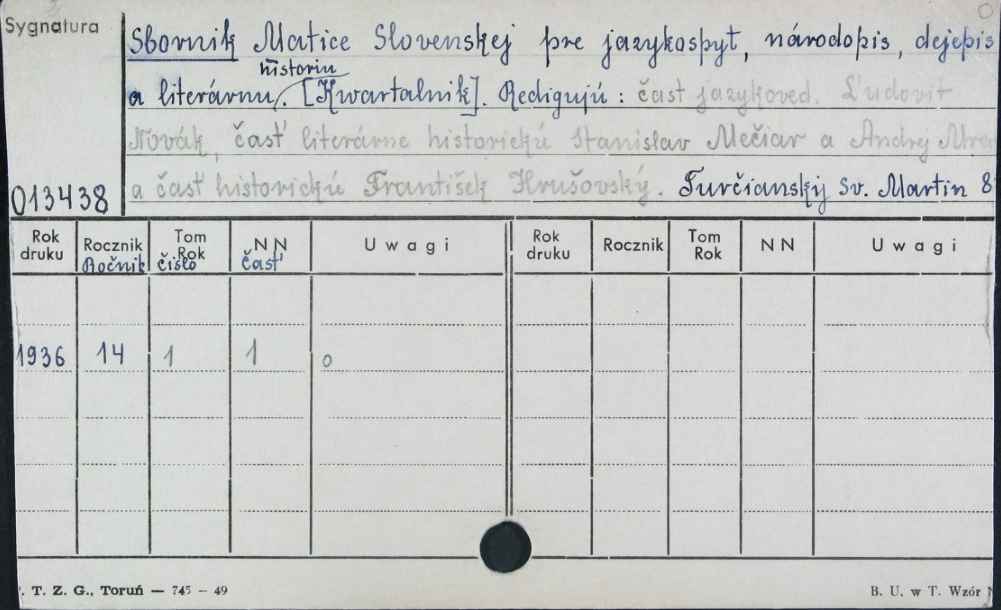 Sygnatura
Sborník Matice Slovenskej pre jazykospyt, národopis, dejepis
historiu
a literárnu. [Kwartalnik]. Redigujú: časť jazykoved. Ľudovit
Novák, časť literárne historickú Stanislav Mečiar a Andrej
a časť historickú František Hrušovský. Turčiansky Sv. Martin 8
013438
Rok druku Rocznik Tom Rok NN Uwagi Rok druku Rocznik Tom Rok NN Uwagi
Ročník číslo časť
1936 14 1 1 0
. T. Z. G., Toruń — 745 – 49 B. U. w T. Wzór